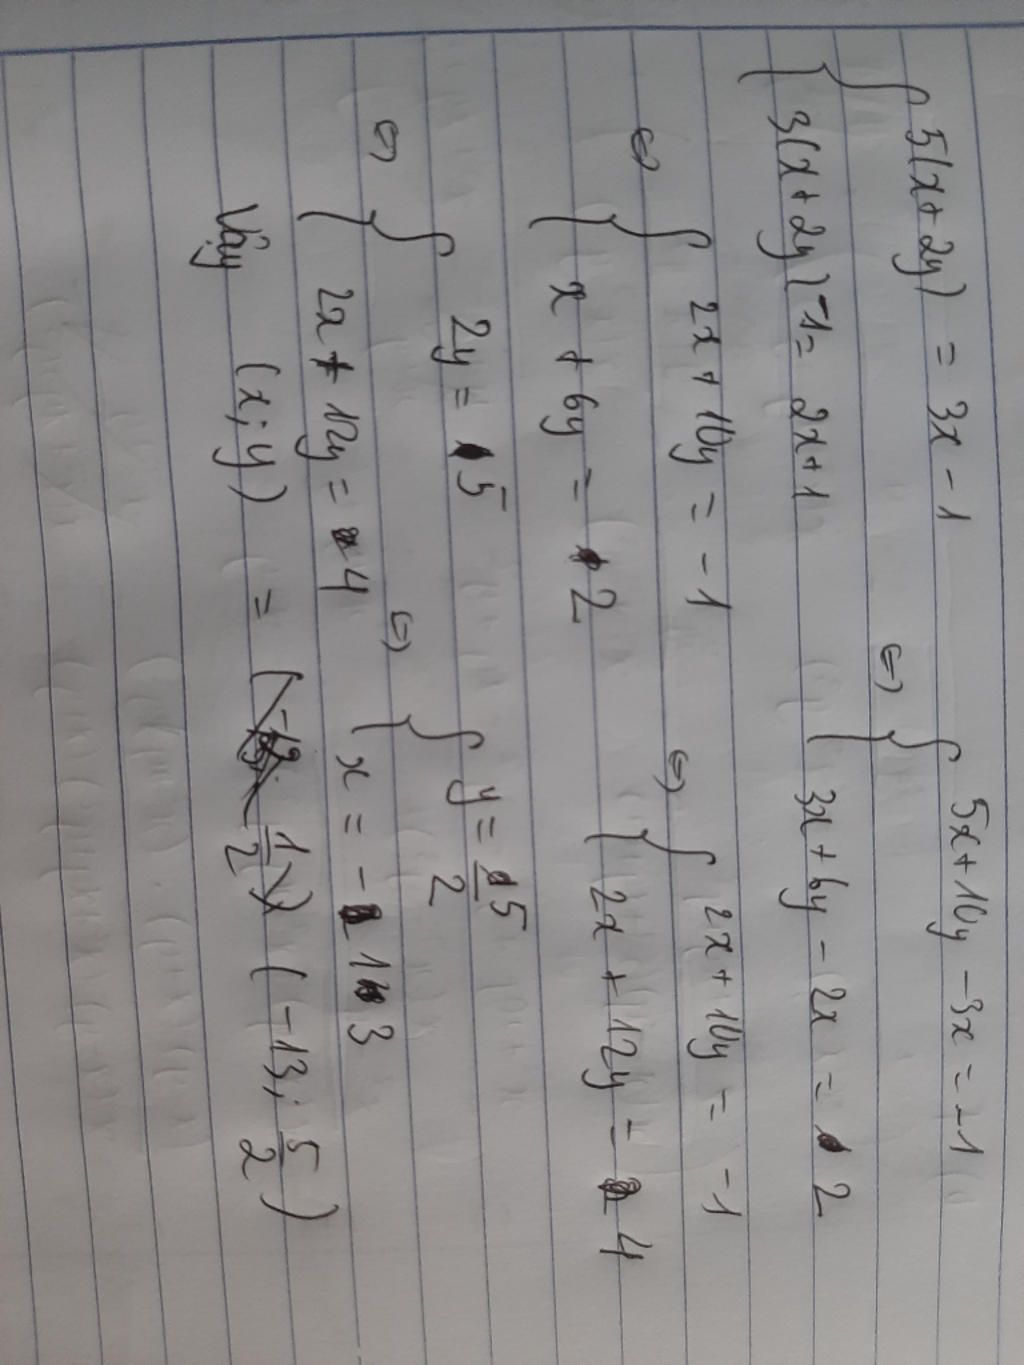 { 5(x + 2y) = 3x - 1
{ 3(x + 2y) - 1 = 2x + 1
⇔ { 5x + 10y - 3x = -1
{ 3x + 6y - 2x = 2
⇔ { 2x + 10y = -1
{ x + 6y = 2
⇔ { 2x + 10y = -1
{ 2x + 12y = 4
⇔ { 2y = 5
{ 2x + 12y = 4
⇔ { y = 5/2
{ x = -13
Vậy (x; y) = (-13; 5/2)